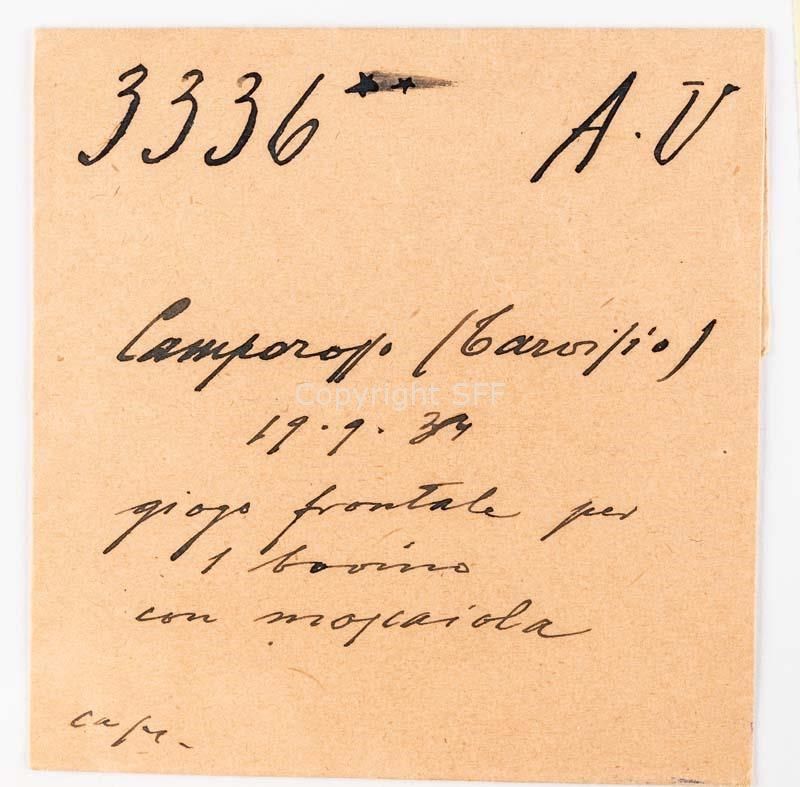 3336** A.V
Camporosso (Tarvisio)
Copyright SFF
19.9.34
giogo frontale per
1 bovino
con moscaiola